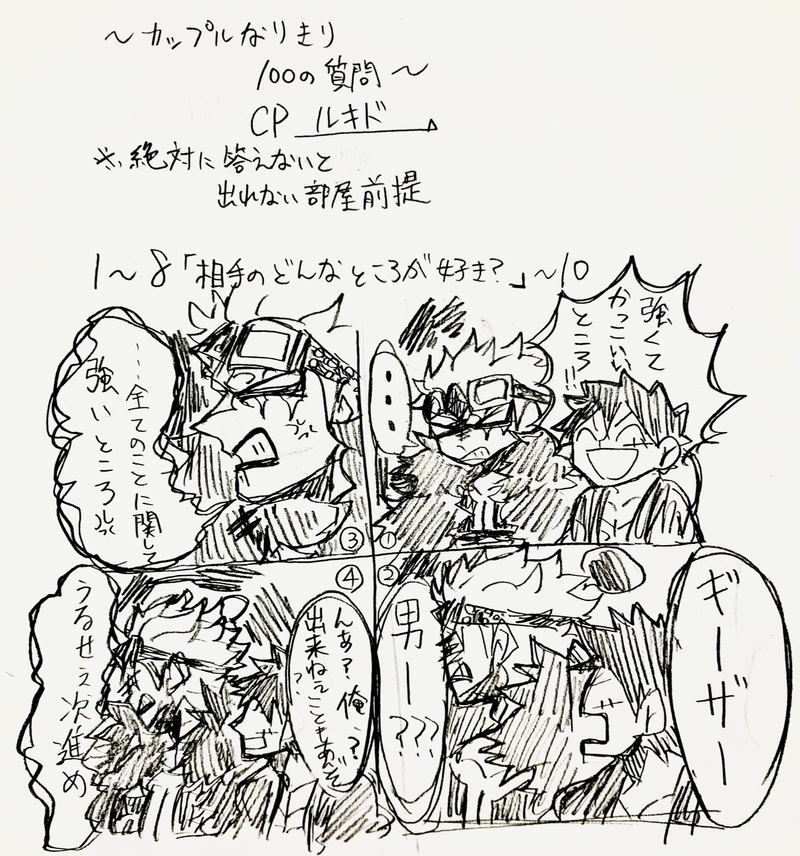 ～カップルなりきり
100の質問～
CP ルキド
※絶対に答えないと
出れない部屋前提
1～8「相手のどんなところが好き?」～10
強くて
かっこいい
ところ!!
…
①
ギーザー
男ー???
②
…全てのことに関して
強いところ
③
んあ?俺、?
出来ねェこともあるぞ?
うるせェ次進め
④